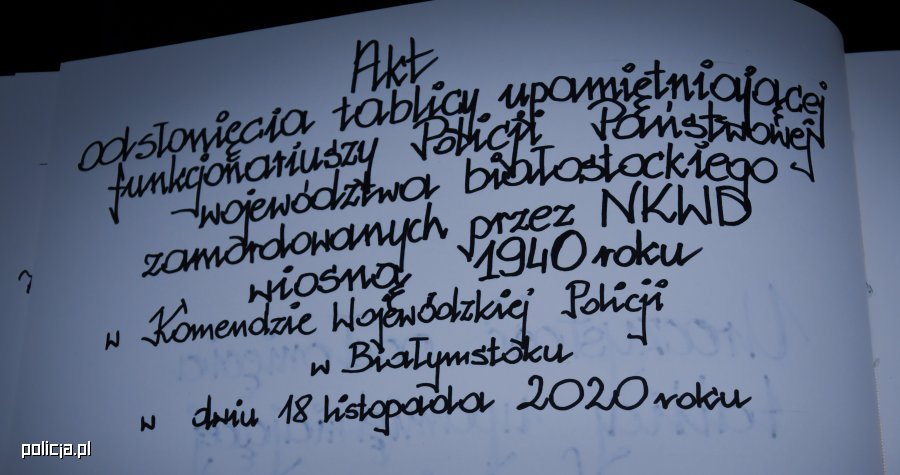 Akt
odsłonięcia tablicy upamiętniającej
funkcjonariuszy Policji Państwowej
województwa białostockiego -
zamordowanych przez NKWD
wiosną 1940 roku
w Komendzie Wojewódzkiej Policji
w Białymstoku
w dniu 18 listopada 2020 roku
policja.pl